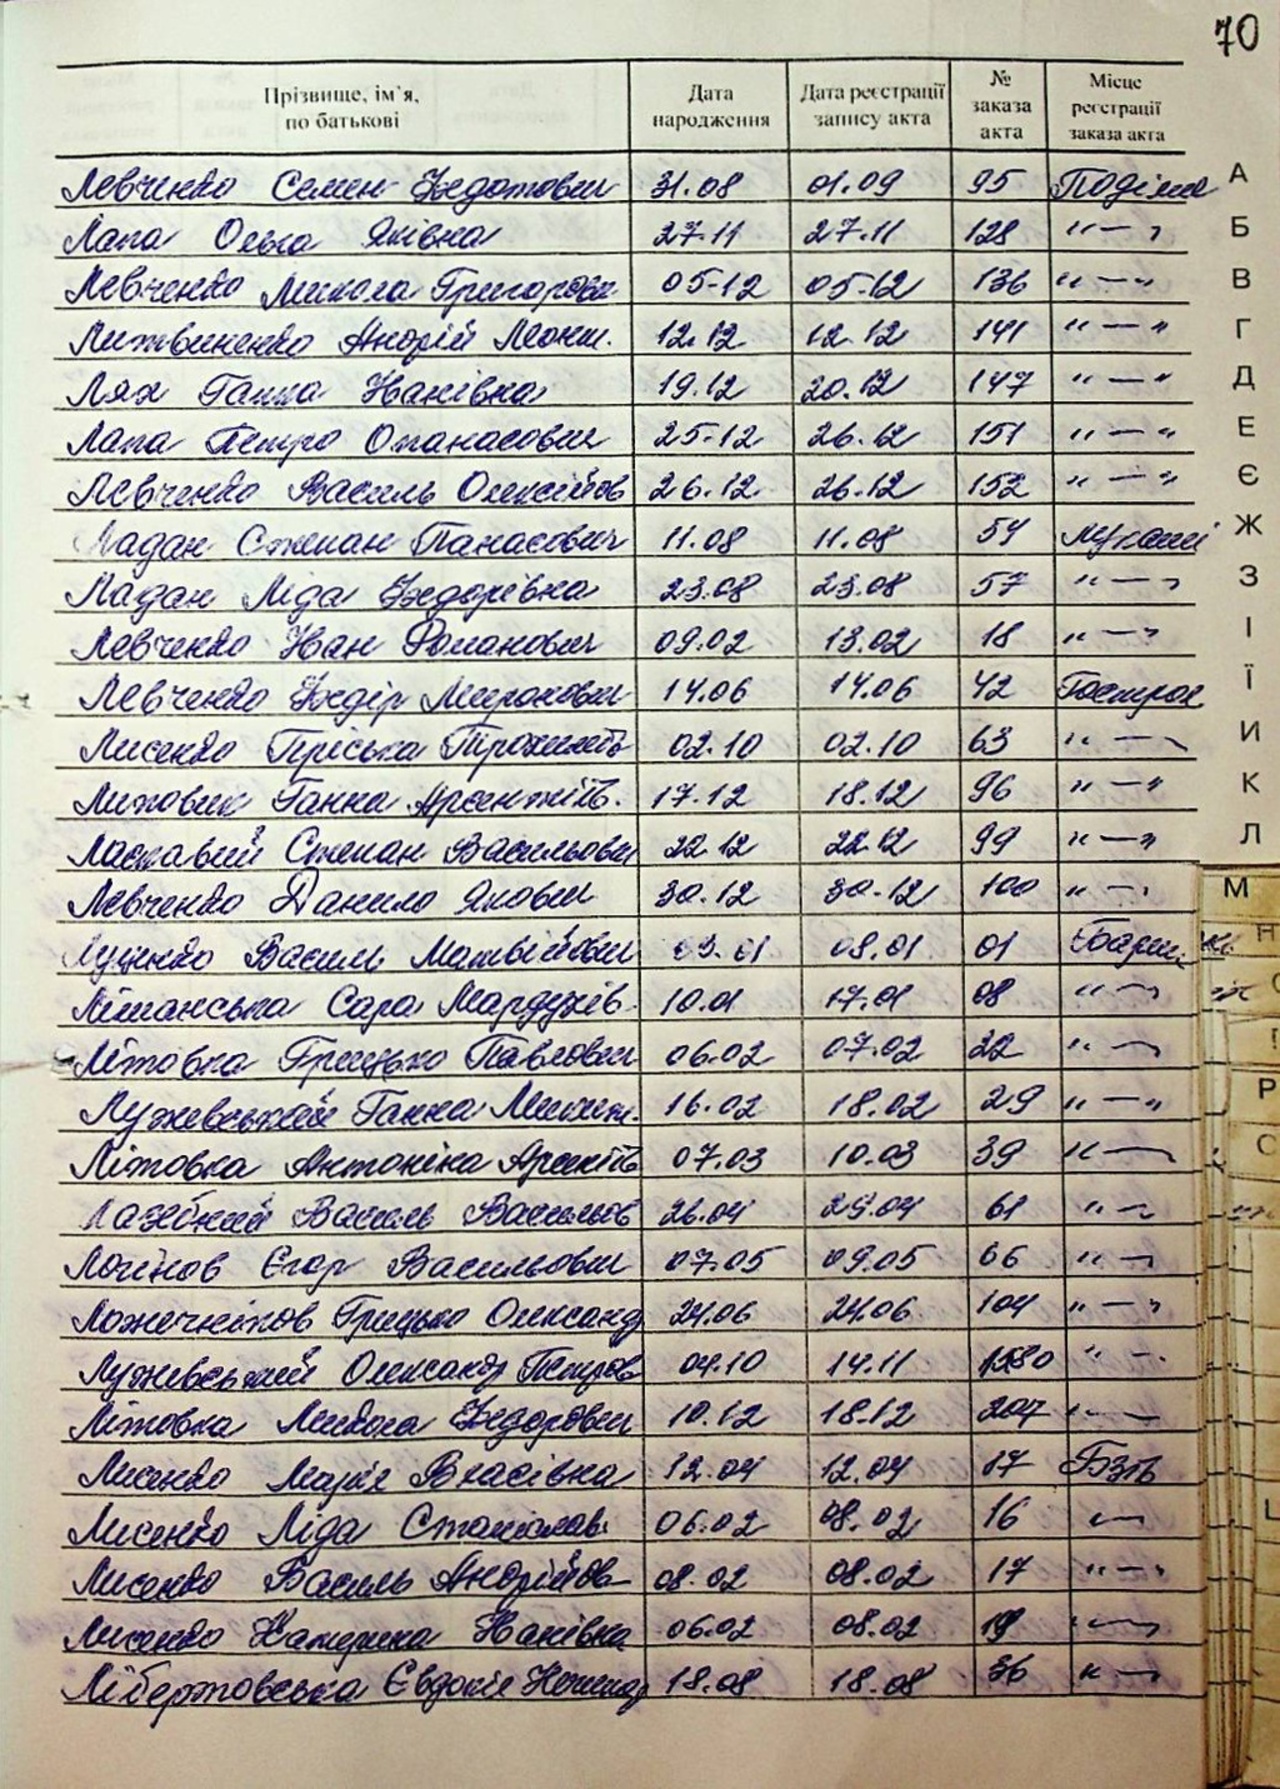 70
Прізвище, ім'я, по батькові Дата народження Дата реєстрації запису акта № заказа акта Місце реєстрації заказа акта
Левченко Семен Федотович 31.08 01.09 95 А
Лапа Ольга Яківна 27.11 27.11 128 " — " Б
Левченко Микола Григоров 05.12 05.12 136 " — " В
Литвиненко Андрій Леонт. 12.12 12.12 141 " — " Г
Лях Ганна Іванівна 19.12 20.12 147 " — " Д
Лапа Петро Опанасович 25.12 26.12 151 " — " Е
Левченко Василь Олексійов 26.12 26.12 152 " — " Є
Ладан Степан Панасович 11.08 11.08 54 Ж
Ладан Ліда Федорівна 23.08 23.08 57 " — " З
Левченко Іван Романович 09.02 13.02 18 " — " І
Левченко Федір Миронович 14.06 14.06 42 Ї
Лисенко Пріська 02.10 02.10 63 " — И
Литовик Ганна 17.12 18.12 96 " — " К
Ласкавий Степан Васильович 22.12 22.12 99 " — " Л
Левченко Данило Якович 30.12 30.12 100 " — " М
Луценко Василь Матвійович 08.01 01 Н
Ліманська Сара 10.01 17.01 08 " — "
Літовка Грицько Павлович 06.02 07.02 22 " — "
Лужевський Ганна 16.02 18.02 29 " — " Р
Літовка Антоніна 07.03 10.03 39 " — С
Лазебний Василь Васильов 26.04 29.04 61 " — "
Логінов Єгор Васильович 07.05 09.05 66 " — "
Ложечніков Грицько Олександ 24.06 24.06 104 " — "
Лужевський Олександр Петров 04.10 14.11 " — "
Літовка Микола Федорович 10.12 18.12 207 " —
Лисенко Марія Власівна 12.04 12.04 17
Лисенко Ліда 06.02 08.02 16 " —
Лисенко Василь Андрійов 08.02 08.02 17 " — "
Лисенко Катерина Іванівна 06.02 08.02 19 " —
Лібертовська Євдокія 18.08 18.08 36 " —